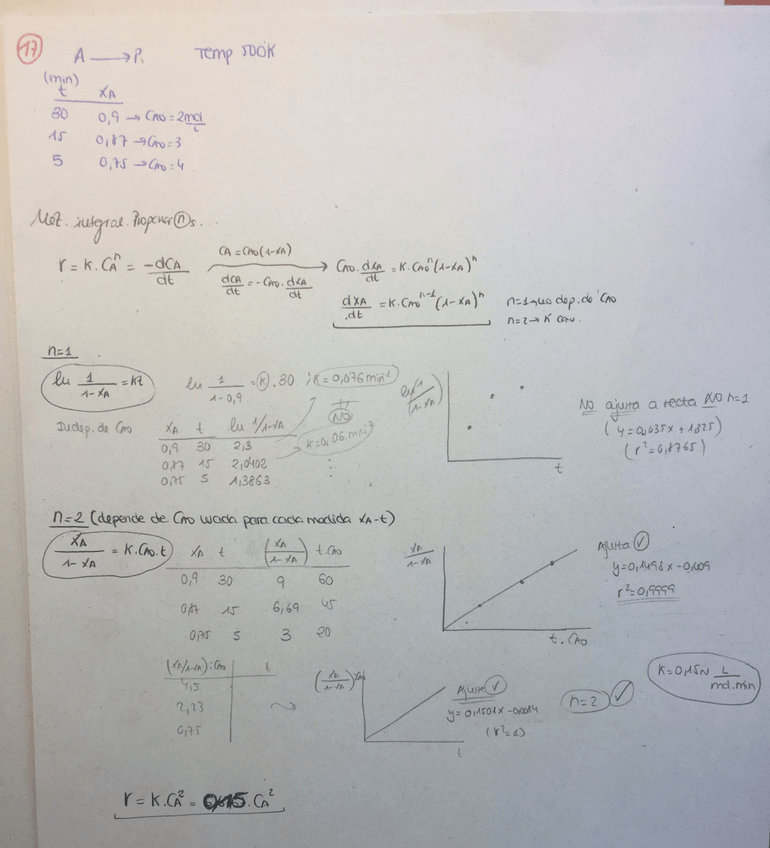 17 A → P. Temp 500K
(min)
t XA
30 0,9 → CAO = 2 mol/L
15 0,87 → CAO = 3
5 0,75 → CAO = 4
Met. integral. Proponer (n)s...
r = K. CA^n = -dCA/dt CA = CAO(1-XA) dCA/dt = -CAO. dXA/dt → CAO. dXA/dt = K. CAO^n (1-XA)^n
dXA/dt = K. CAO^n-1 (1-XA)^n n=1 → no dep. de CAO
n=2 → K CAO.
n=1
ln 1/1-XA = Kt ln 1/1-0,9 = K. 30 ; K = 0,076 min-1
Indep. de CAO XA t ln 1/1-XA NO
K = 0,06 min-1
0,9 30 2,3
0,87 15 2,0402
0,75 5 1,3863
ln 1/(1-XA) t
NO ajusta a recta NO n=1
(y = 0,035x + 1,325)
(r² = 0,8765)
n=2 (depende de CAO usada para cada medida XA-t)
XA/1-XA = K. CAO. t XA t (XA/1-XA) t. CAO
0,9 30 9 60
0,87 15 6,69 45
0,75 5 3 20
XA/1-XA t. CAO
Ajusta
y = 0,1496x - 0,009
r² = 0,9999
(XA/1-XA):CAO t
4,5
2,23
0,75
(XA/1-XA) t
Ajusta
y = 0,1502x - 0,0014
(r² = 1)
n=2
K = 0,15 L/mol.min
r = K. CA² = 0,15. CA²